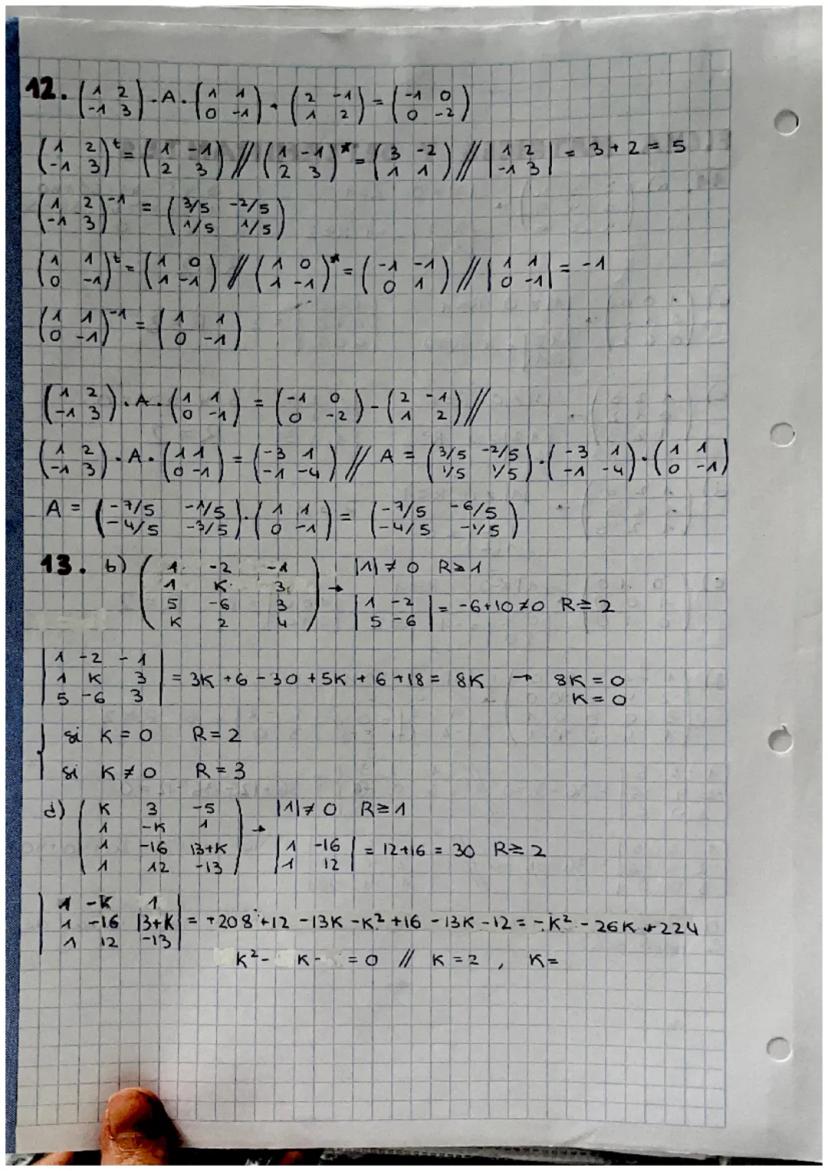 12. (1 2 / -1 3) · A · (1 1 / 0 -1) + (2 -1 / 1 2) = (-1 0 / 0 -2)
(1 2 / -1 3)^t = (1 -1 / 2 3) // (1 -1 / 2 3)^* = (3 -2 / 1 1) // |1 2 / -1 3| = 3 + 2 = 5
(1 2 / -1 3)^-1 = (3/5 -2/5 / 1/5 1/5)
(1 1 / 0 -1)^t = (1 0 / 1 -1) // (1 0 / 1 -1)^* = (-1 -1 / 0 1) // |1 1 / 0 -1| = -1
(1 1 / 0 -1)^-1 = (1 1 / 0 -1)
(1 2 / -1 3) · A · (1 1 / 0 -1) = (-1 0 / 0 -2) - (2 -1 / 1 2) //
(1 2 / -1 3) · A · (1 1 / 0 -1) = (-3 1 / -1 -4) // A = (3/5 -2/5 / 1/5 1/5) · (-3 1 / -1 -4) · (1 1 / 0 -1)
A = (-7/5 -1/5 / -4/5 -3/5) · (1 1 / 0 -1) = (-7/5 -6/5 / -4/5 -1/5)
13. b) (1 -2 -1 / 1 K 3 / 5 -6 3 / K 2 4) → |1| ≠ 0 R≥1
|1 -2 / 5 -6| = -6+10 ≠0 R≥2
|1 -2 -1 / 1 K 3 / 5 -6 3| = 3K + 6 - 30 + 5K + 6 + 18 = 8K → 8K = 0
K = 0
si K = 0 R = 2
si K ≠ 0 R = 3
d) (K 3 -5 / 1 -K 1 / 1 -16 13+K / 1 12 -13) → |1| ≠ 0 R≥1
|1 -16 / 1 12| = 12+16 = 30 R≥2
|1 -K 1 / 1 -16 13+K / 1 12 -13| = +208 +12 -13K -K² +16 -13K -12 = -K² - 26K +224
K² - K - = 0 // K = 2 , K =